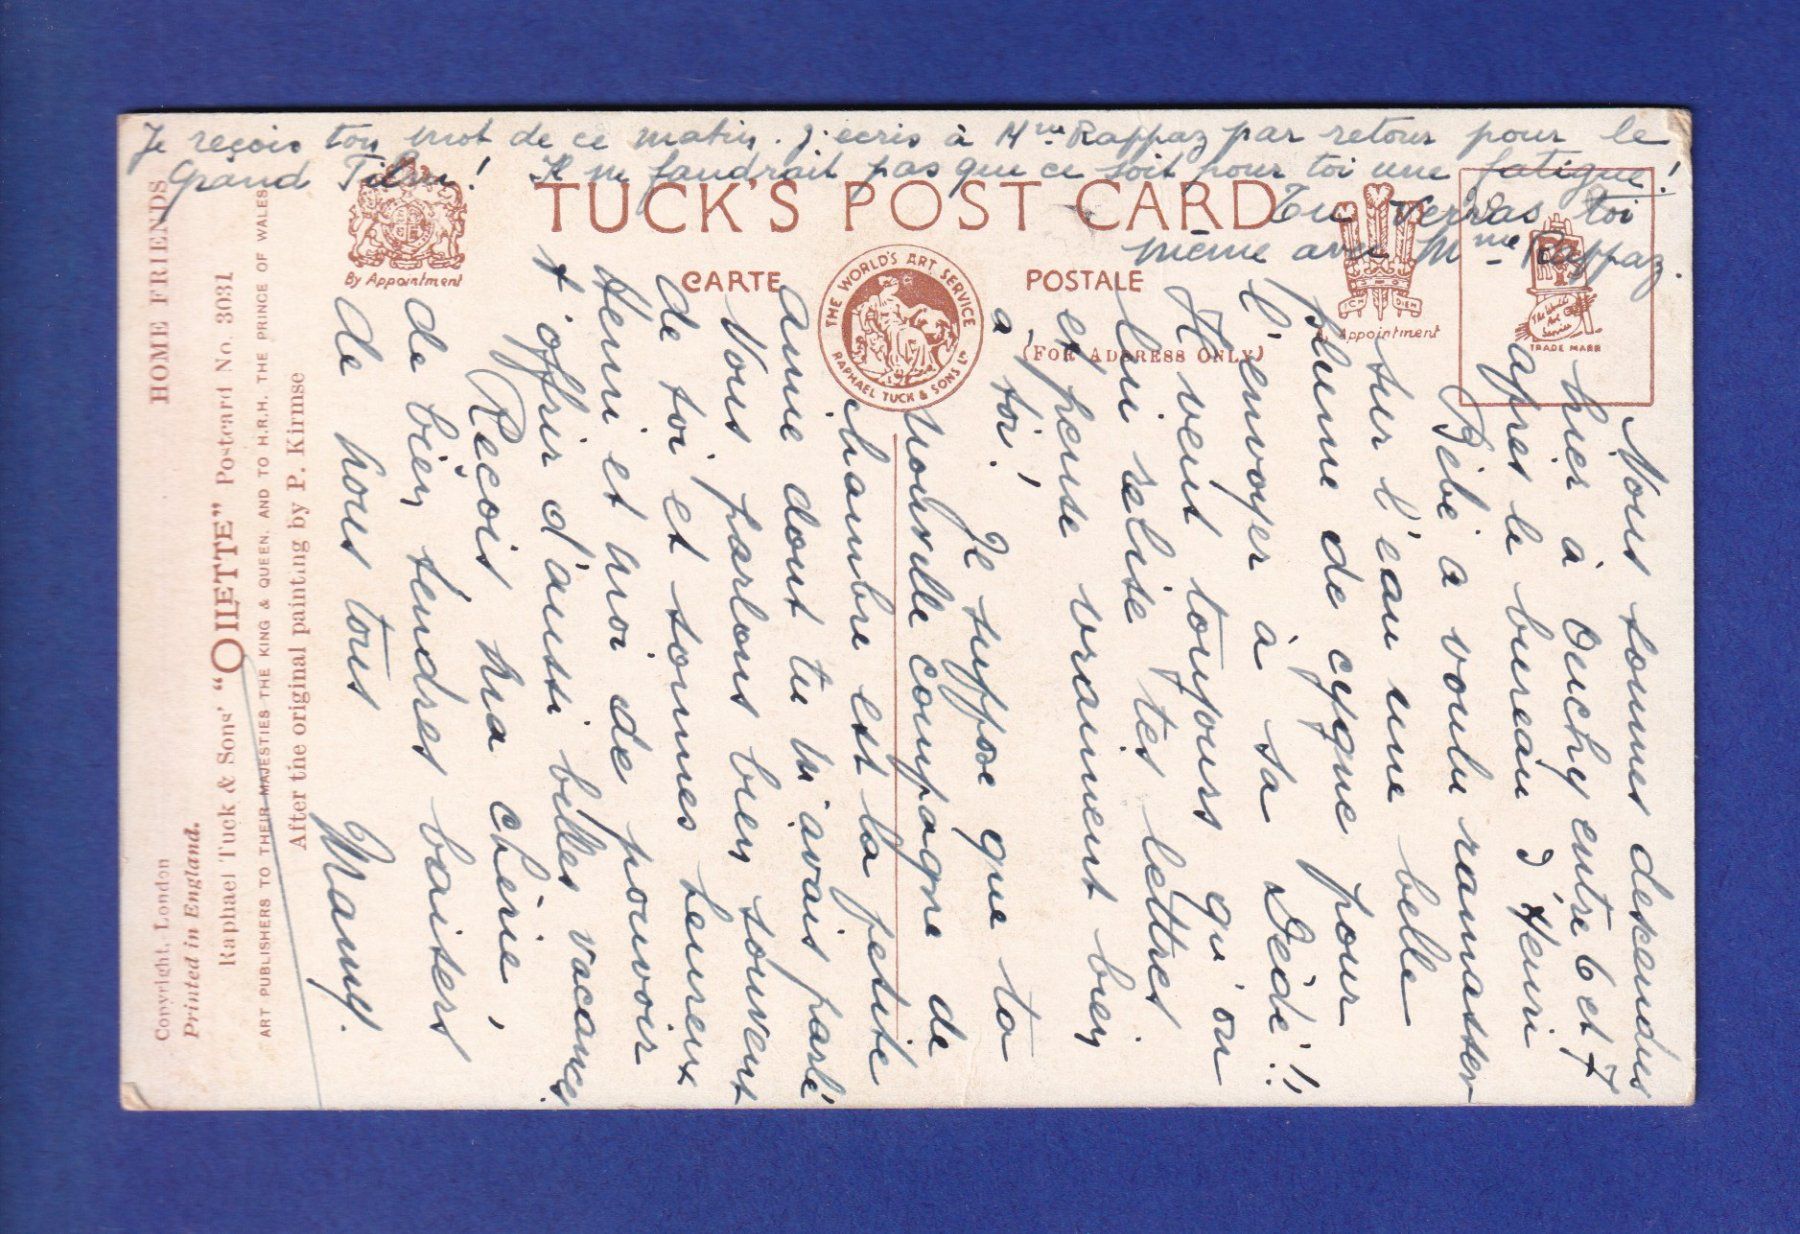 Je reçois ton mot de ce matin. J'ecris à Mme Rappaz par retour pour le
Grand ! Il ne faudrait pas que ce soit pour toi une fatigue!
Tu verras toi
même avec Mme Rappaz.
TUCK'S POST CARD
CARTE POSTALE
(FOR ADDRESS ONLY)
By Appointment
THE WORLD'S ART SERVICE
RAPHAEL TUCK & SONS LD
ICH DIEN
By Appointment
The World's
Art
Service
TRADE MARK
HOME FRIENDS
Copyright, London
Printed in England.
Raphael Tuck & Sons' "OILETTE" Postcard No. 3031
ART PUBLISHERS TO THEIR MAJESTIES THE KING & QUEEN, AND TO H.R.H. THE PRINCE OF WALES.
After the original painting by P. Kirmse
Nous sommes descendus
hier à Ouchy entre 6 et 7
après le bureau d'Henri
Bébé a voulu ramasser
sur l'eau une belle
plume de cygne pour
l'envoyer à sa Dédé!!
Il veut toujours qu'on
lui relise tes lettres
et pense vraiment bien
à toi!
Je suppose que ta
nouvelle compagne de
chambre est la petite
amie dont tu m'avais parlé
Nous parlons bien souvent
de toi et sommes heureux
Henri et moi de pouvoir
t'offrir d'aussi belles vacances
Reçois ma chérie,
de bien tendres baisers
de nous tous
Mamy.